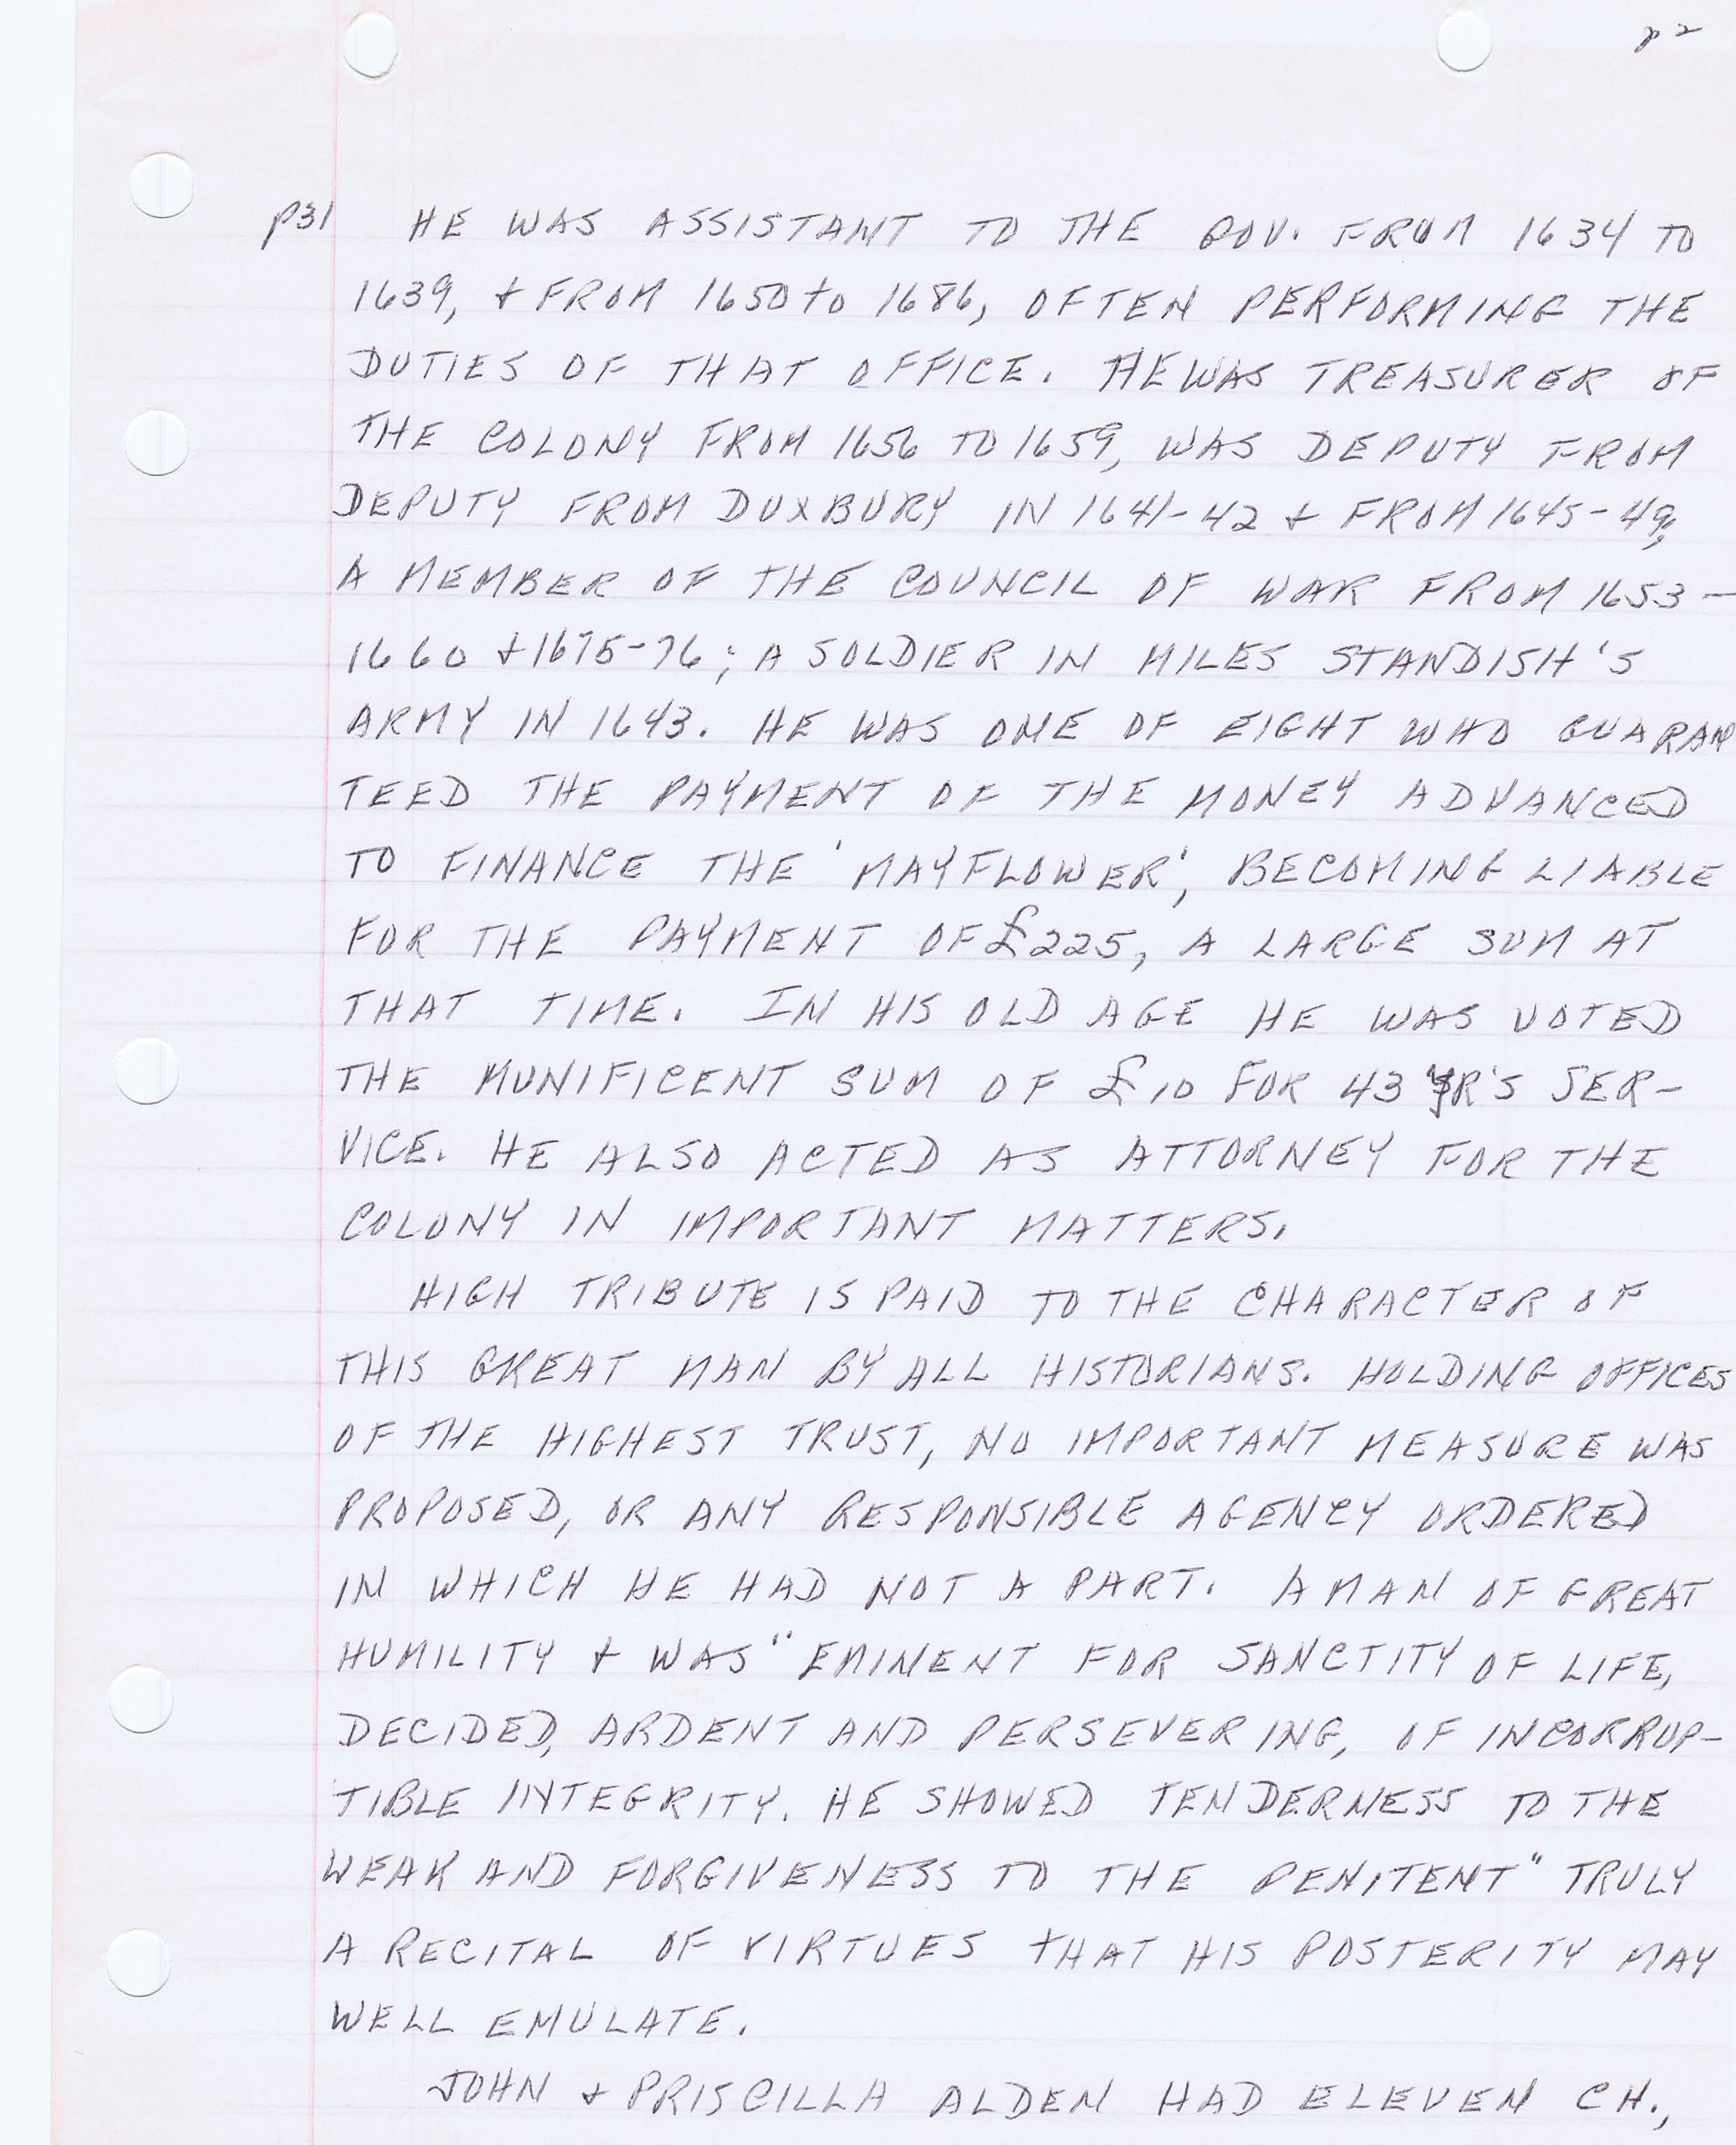 p 2
p31 HE WAS ASSISTANT TO THE GOV. FROM 1634 TO
1639, & FROM 1650 to 1686, OFTEN PERFORMING THE
DUTIES OF THAT OFFICE. HE WAS TREASURER OF
THE COLONY FROM 1656 TO 1659, WAS DEPUTY FROM
DEPUTY FROM DUXBURY IN 1641-42 & FROM 1645-49,
A MEMBER OF THE COUNCIL OF WAR FROM 1653-
1660 & 1675-76; A SOLDIER IN MILES STANDISH'S
ARMY IN 1643. HE WAS ONE OF EIGHT WHO GUARAN
TEED THE PAYMENT OF THE MONEY ADVANCED
TO FINANCE THE 'MAYFLOWER', BECOMING LIABLE
FOR THE PAYMENT OF £225, A LARGE SUM AT
THAT TIME. IN HIS OLD AGE HE WAS VOTED
THE MUNIFICENT SUM OF £10 FOR 43 YR'S SER-
VICE. HE ALSO ACTED AS ATTORNEY FOR THE
COLONY IN IMPORTANT MATTERS.
HIGH TRIBUTE IS PAID TO THE CHARACTER OF
THIS GREAT MAN BY ALL HISTORIANS. HOLDING OFFICES
OF THE HIGHEST TRUST, NO IMPORTANT MEASURE WAS
PROPOSED, OR ANY RESPONSIBLE AGENCY ORDERED
IN WHICH HE HAD NOT A PART. A MAN OF GREAT
HUMILITY & WAS "EMINENT FOR SANCTITY OF LIFE,
DECIDED, ARDENT AND PERSEVERING, OF INCORRUP-
TIBLE INTEGRITY. HE SHOWED TENDERNESS TO THE
WEAK AND FORGIVENESS TO THE PENITENT" TRULY
A RECITAL OF VIRTUES tHAT HIS POSTERITY MAY
WELL EMULATE.
JOHN & PRISCILLA ALDEN HAD ELEVEN CH.,